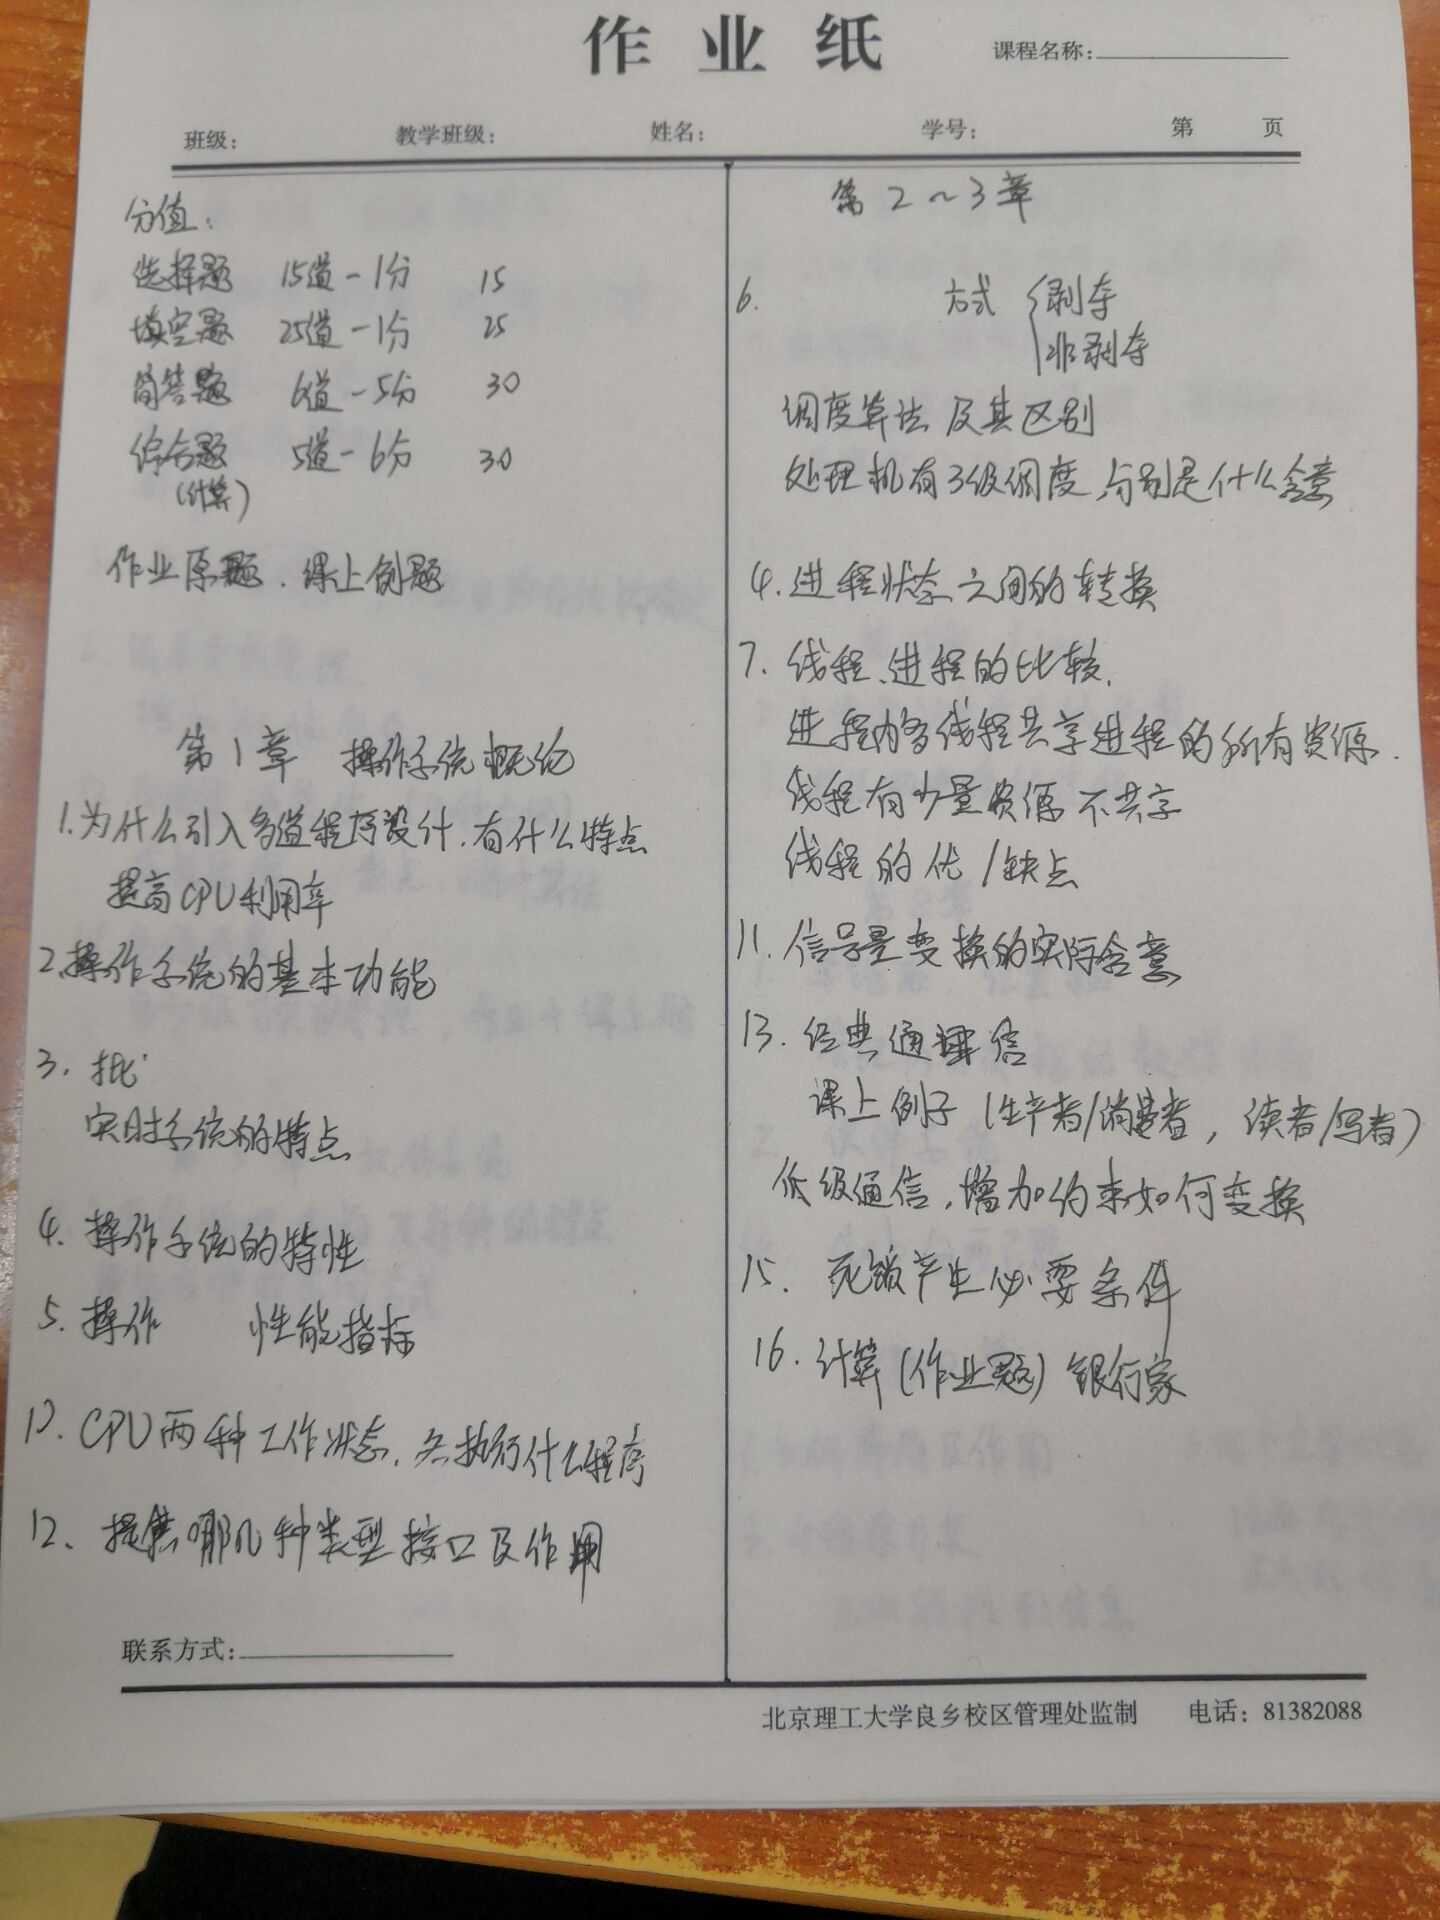 作业纸
课程名称：
班级：　教学班级：　姓名：　学号：　第　页
分值：
选择题　15道-1分　15
填空题　25道-1分　25
简答题　6道-5分　30
综合题　5道-6分　30
(计算)
作业原题、课上例题
第1章　操作系统概论
1.为什么引入多道程序设计，有什么特点
提高CPU利用率
2.操作系统的基本功能
3.批
实时系统的特点
4.操作系统的特性
5.操作　性能指标
CPU两种工作状态，各执行什么程序
12、提供哪几种类型接口及作用
联系方式：
第2~3章
6.　方式 { 剥夺
非剥夺
调度算法及其区别
处理机有3级调度，分别是什么含意
4.进程状态之间的转换
7.线程、进程的比较.
进程内各线程共享进程的所有资源.
线程有少量资源不共享
线程的优/缺点
11.信号量变换的实际含意
13.经典通信
课上例子(生产者/消费者，读者/写者)
低级通信，增加约束如何变换
15.死锁产生必要条件
16.计算(作业题)银行家
北京理工大学良乡校区管理处监制　电话：81382088